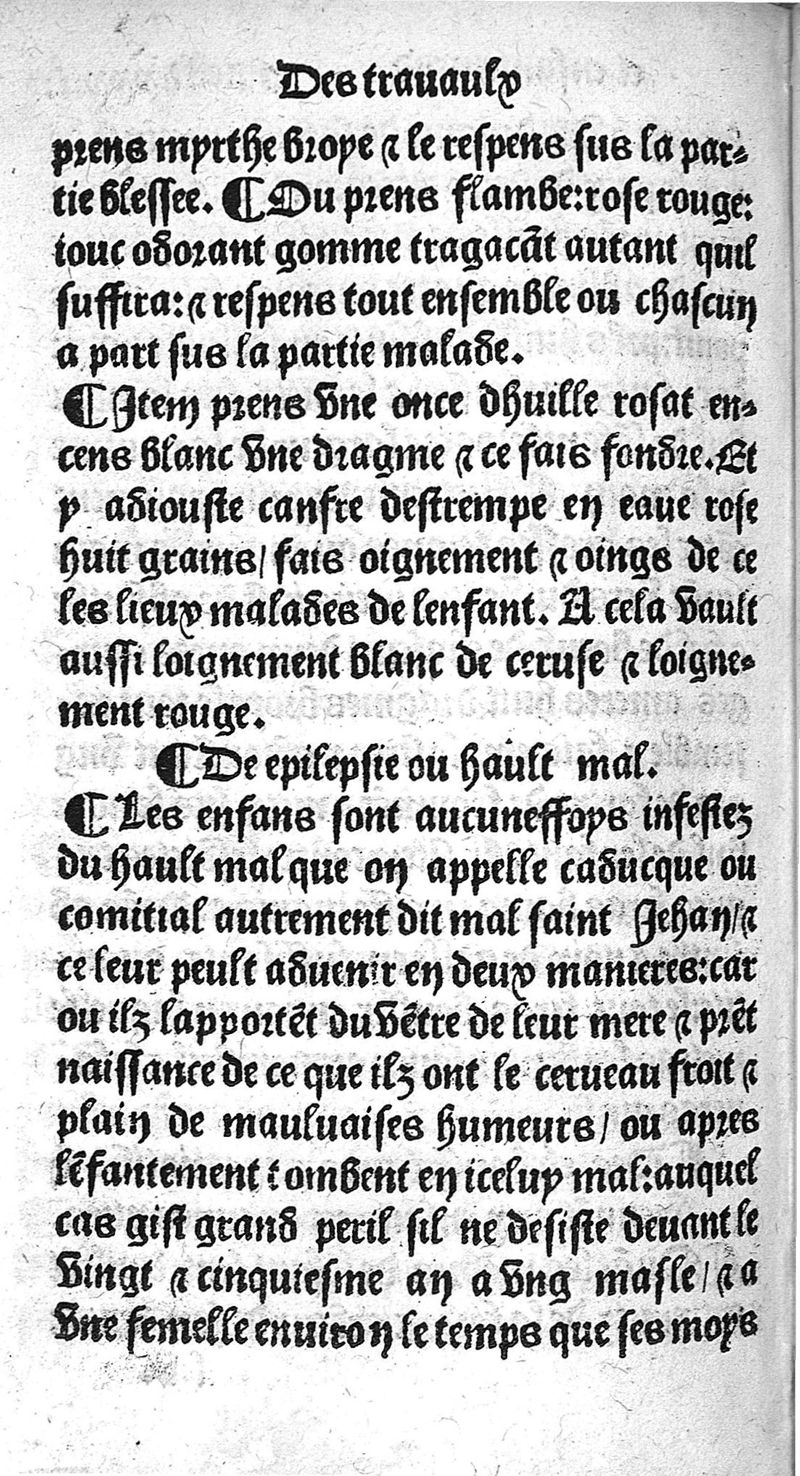 Des travaulx
prens myrthe broye ⁊ le respens sus la par⸗
tie blessee. ¶ Ou prens flambe:rose rouge:
iouc odorant gomme tragacãt autant quil
suffira: ⁊ respens tout ensemble ou chascun
a part sus la partie malade.
¶ Item prens vne once dhuille rosat en⸗
cens blanc vne dragme ⁊ ce fais fondre. Et
y adiouste canfre destrempe en eaue rose
huit grains/ fais oignement ⁊ oings de ce
les lieux malades de lenfant. A cela vault
aussi loignement blanc de ceruse ⁊ loigne⸗
ment rouge.
¶ De epilepsie ou hault mal.
¶ Les enfans sont aucuneffoys infestez
du hault mal que on appelle caducque ou
comitial autrement dit mal saint Jehan/ ⁊
ce leur peult aduenir en deux manieres:car
ou ilz lapportẽt du vẽtre de leur mere ⁊ prẽt
naissance de ce que ilz ont le cerueau froit ⁊
plain de mauluaises humeurs/ ou apres
lẽfantement tombent en iceluy mal:auquel
cas gist grand peril sil ne desiste deuant le
vingt ⁊ cinquiesme an a vng masle/ ⁊ a
vne femelle enuiron le temps que ses moys